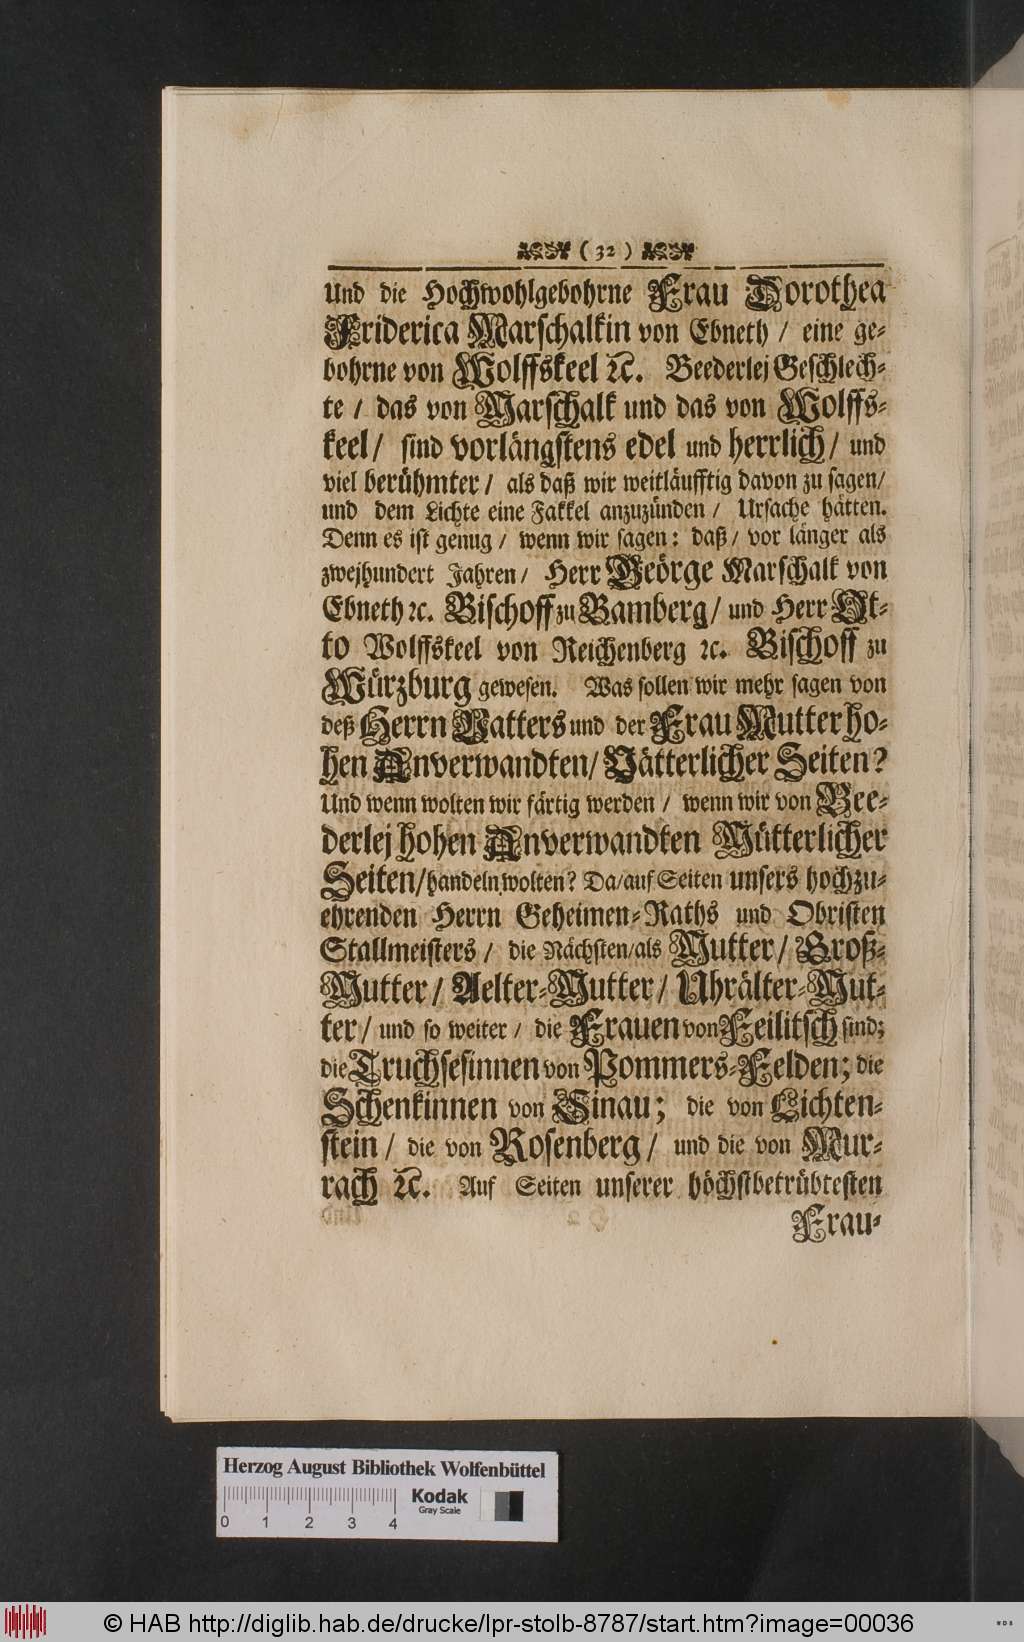 ( 32 )
Und die Hochwohlgebohrne Frau Dorothea
Friderica Marschalkin von Ebneth / eine ge-
bohrne von Wolffskeel ꝛc. Beederlej Geschlech-
te / das von Marschalk und das von Wolffs-
keel / sind vorlängstens edel und herrlich / und
viel berühmter / als daß wir weitläufftig davon zu sagen /
und dem Lichte eine Fakkel anzuzünden / Ursache hätten.
Denn es ist genug / wenn wir sagen: daß / vor länger als
zwejhundert Jahren / Herr Geörge Marschalk von
Ebneth ꝛc. Bischoff zu Bamberg / und Herr Ot-
to Wolffskeel von Reichenberg ꝛc. Bischoff zu
Würzburg gewesen. Was sollen wir mehr sagen von
deß Herrn Vatters und der Frau Mutter ho-
hen Anverwandten / Vätterlicher Seiten?
Und wenn wolten wir färtig werden / wenn wir von Bee-
derlej hohen Anverwandten Mütterlicher
Seiten / handeln wolten? Da / auf Seiten unsers hochzu-
ehrenden Herrn Geheimen-Raths und Obristen
Stallmeisters / die Nächsten / als Mutter / Groß-
Mutter / Aelter-Mutter / Uhrälter-Mut-
ter / und so weiter / die Frauen von Feilitsch sind;
die Truchsesinnen von Pommers-Felden; die
Schenkinnen von Sinau; die von Lichten-
stein / die von Rosenberg / und die von Mur-
rach ꝛc. Auf Seiten unserer höchstbetrübtesten
Frau-
Herzog August Bibliothek Wolfenbüttel
Kodak
Gray Scale
0 1 2 3 4
© HAB http://diglib.hab.de/drucke/lpr-stolb-8787/start.htm?image=00036